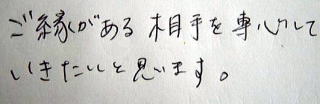 ご縁がある相手を専心して
いきたいと思います。